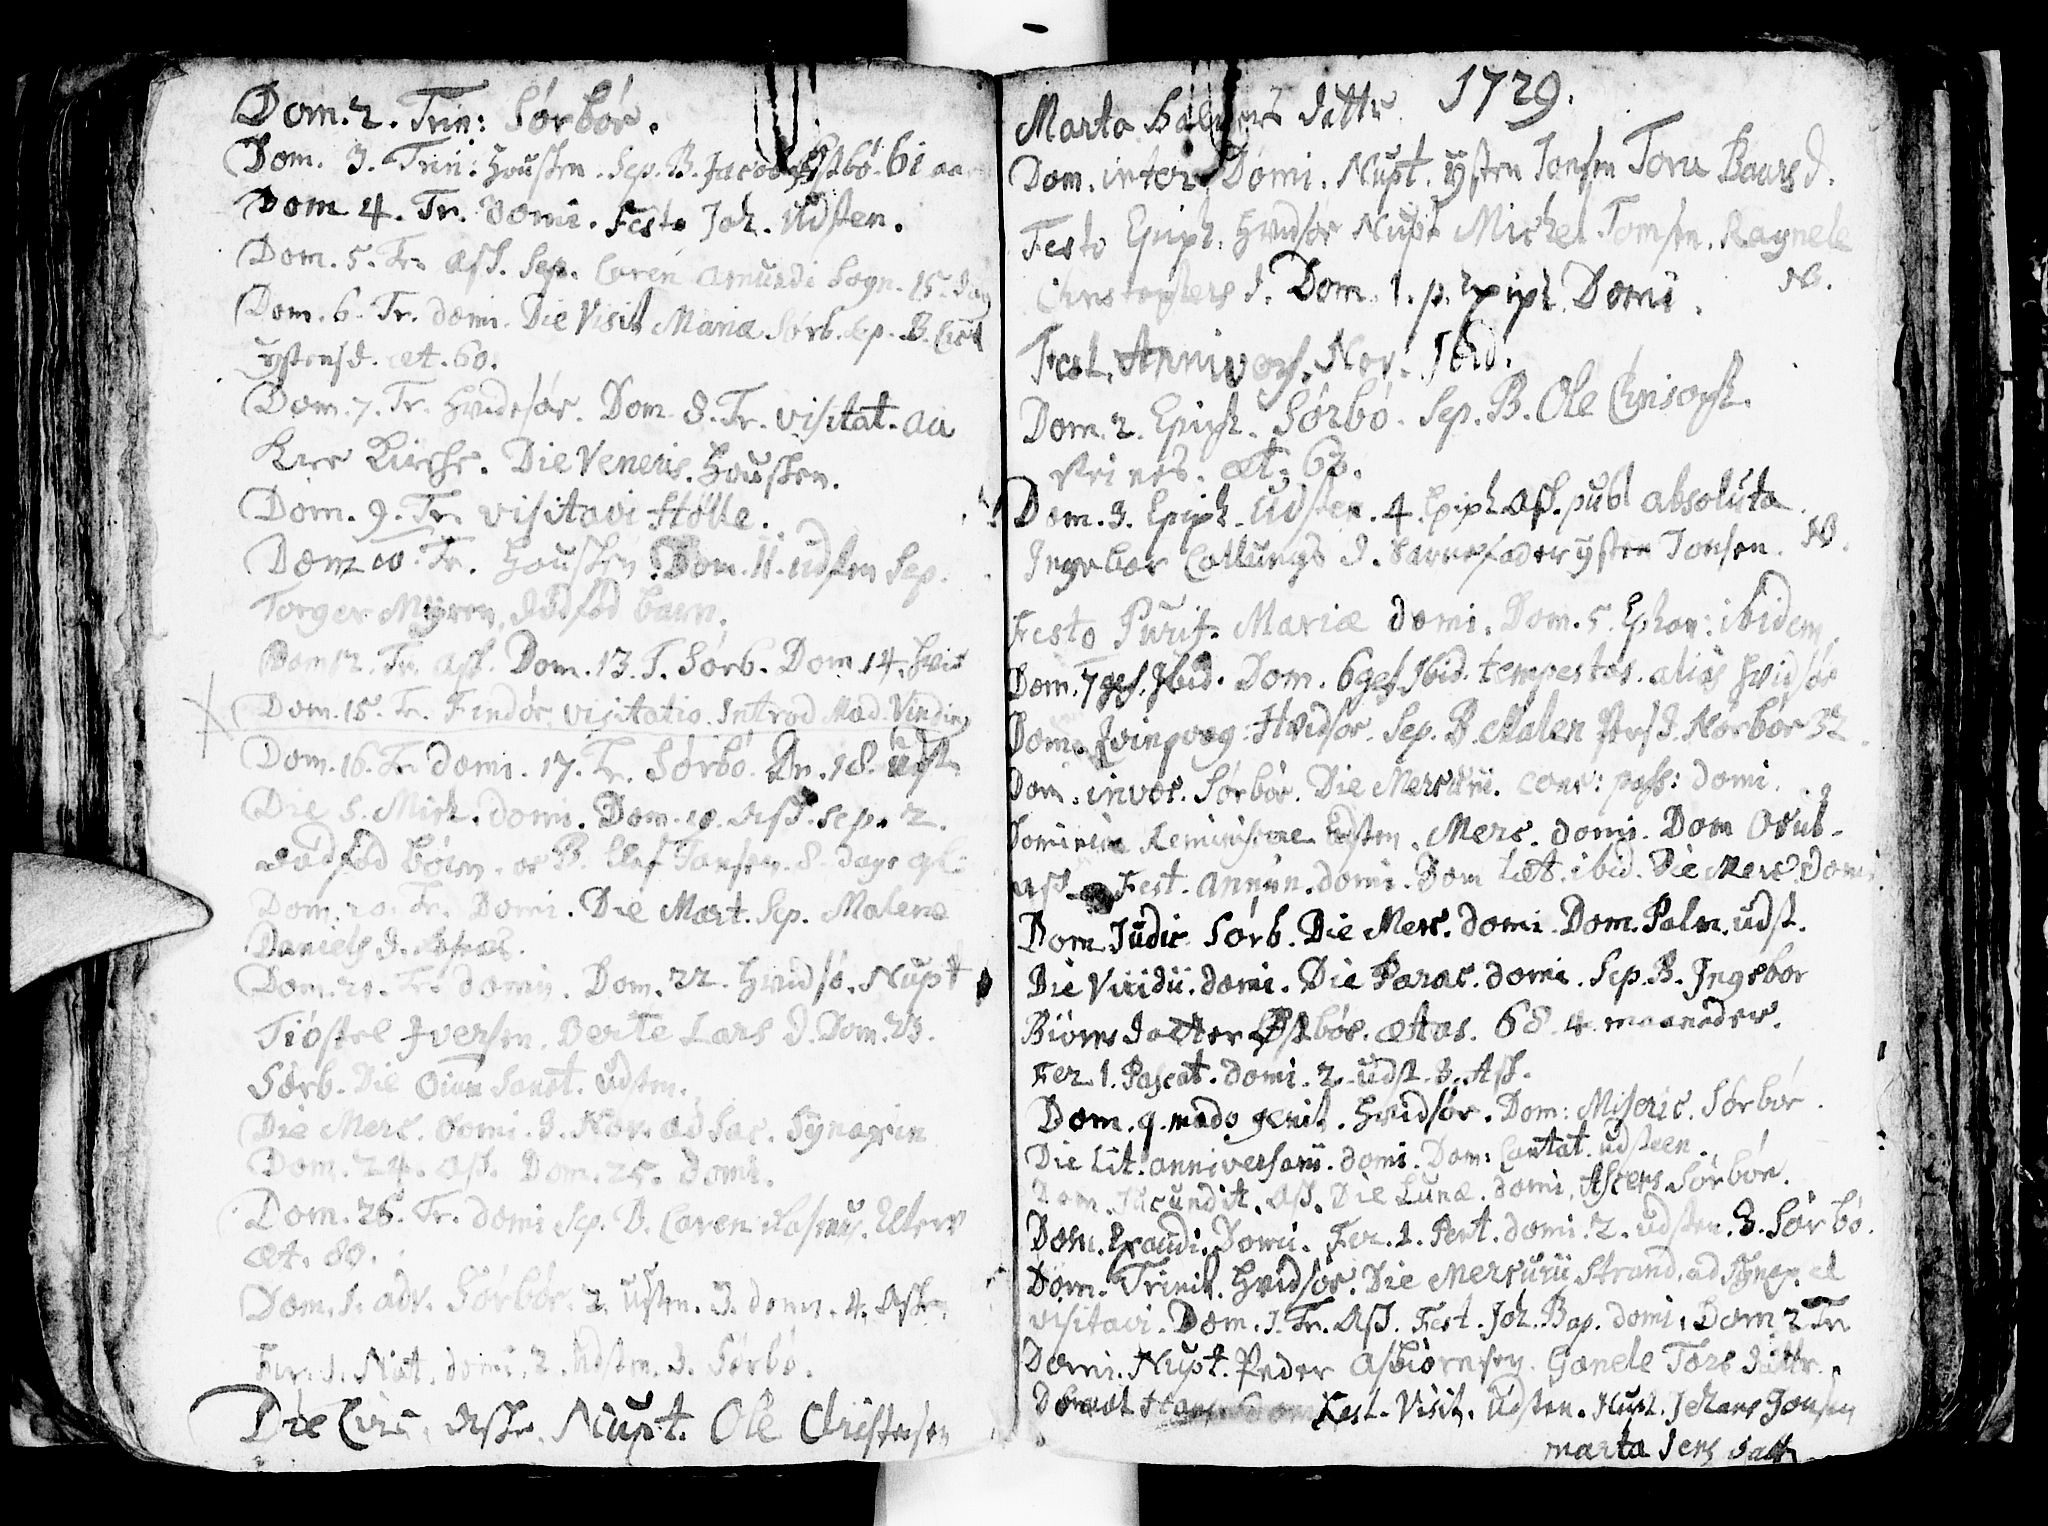 Dom. 2. Trin: Sørbør.
Dom. 3. Trin: Housken. Sep. B. Jacob Østbø. 61 aar
Dom 4. Tr. Domi. Festo Joh. Udsten.
Dom. 5. Tr. Ask. Sep. Caren Amundi Sogn. 15. dag
Dom. 6. Tr. domi. Die Visit Mariæ Sørb. Sep. B.
ystensd. æt. 60.
Dom. 7. Tr. Hvidsør. Dom. 8. Tr. visitat. Aa
Kirche. Die Veneris. Housken.
Dom. 9. Tr. visitavi Hølle.
Dom 10. Tr. Housken. Dom. 11. udsten Sep.
Torger Myren, dødfød barn.
Dom 12. Tr. Ask. Dom. 13. T. Sørb. Dom 14. Hvid
Dom. 15. Tr. Findør, visitatio. Introd Mad. Vinding
Dom. 16. Tr. domi. 17. Tr. Sørbø. 18. udst
Die S. Mich. domi. Dom. 19. Ask. Sep. 2.
dødfød børn. oc B. Elef Jansen. 8 dage gl:
Dom. 20. Tr. Domi. Die Mart. Sep. Malene
Daniels d.
Dom. 21. Tr. domi. Dom. 22. Hvidsø. Nupt
Tiøstel Iversen. Berte Lars d. Dom. 23.
Sørb. Die Oium Sanct. udsten.
Die Merc. Domi. 3. Nov. ad Sac. Synaxin
Dom. 24. Ask. Dom. 25. domi.
Dom. 26. Tr. domi Sep. B. Caren Rasmus.
æt. 80.
Dom. 1. adv. Sørbør. 2. usten. 3. domi. 4. Ask.
Fer. 1. Nat. domi. 2. Udsten. 3. Sørbø.
Die Circ. Aske. Nupt. Ole Christensen
Marta datter 1729.
Dom. inter Domi. Nupt. ysten Jonsen Toru Baars d.
Festo Epiph. Hvidsør Nupt Michel Tomsen. Ragnele
Christophers d. Dom. 1. p. Epiph. Domi. NB.
Fest. Annivers. Nov. Ibid.
Dom. 2. Epiph. Sørbø. Sep. B. Ole
æt: 63.
Dom. 3. Epiph. Udsten. 4. Epiph Ask. publ absoluta
Ingebor d. Barnefader ysten Jonsen. NB.
Festo Purif. Mariæ domi. Dom. 5. Ephan: ibidem.
Dom. 7ges. Ibid. Dom. 6ges. Ibid. tempestas. alias Hvidsør
Dom. Qvinqvag: Hvidsør. Sep. B. Malen Pers d. Nørbør 32.
Dom. invoc. Sørbør. Die Mercurii. conc: pass: domi.
Dominica Reminiscere Udsten. Merc. domi. Dom Ocul.
Ask. Fest. Annun. domi. Dom Læt. ibid. Die Merc. Domi.
Dom Judic Sørb. Die Merc. domi. Dom. Palm. udst.
Die Viridii. domi. Die Parac. domi. Sep. B. Ingebor
Biørns daatter Østbøe. ætas. 68. 4 maaneder.
Fer. 1. Pascat. domi. 2. udst. 3. Ask.
Dom. q. modo genit. Hvidsør. Dom: Miseric. Sørbør.
Die Lit. anniversarii. domi. Dom: Cantat. udsteen.
Dom. Jucundit. Ask. Die Lunæ. domi. Ascens Sørbør.
Dom. Exaudi. Domi. Fer. 1. Pent. domi. 2. udsten. 3. Sørbø.
Dom. Trinit. Hvidsør. Die Mercurii Strand. ad Synap. et
visitavi. Dom. 1. Tr. Ask. Fest. Joh. Bap. domi. Dom 2 Tr.
Domi. Nupt. Peder Asbiørnsen. Gønele Tors dattr.
Fest. Visit. Udsten. Nupt. Jonsen
marta Jens datt